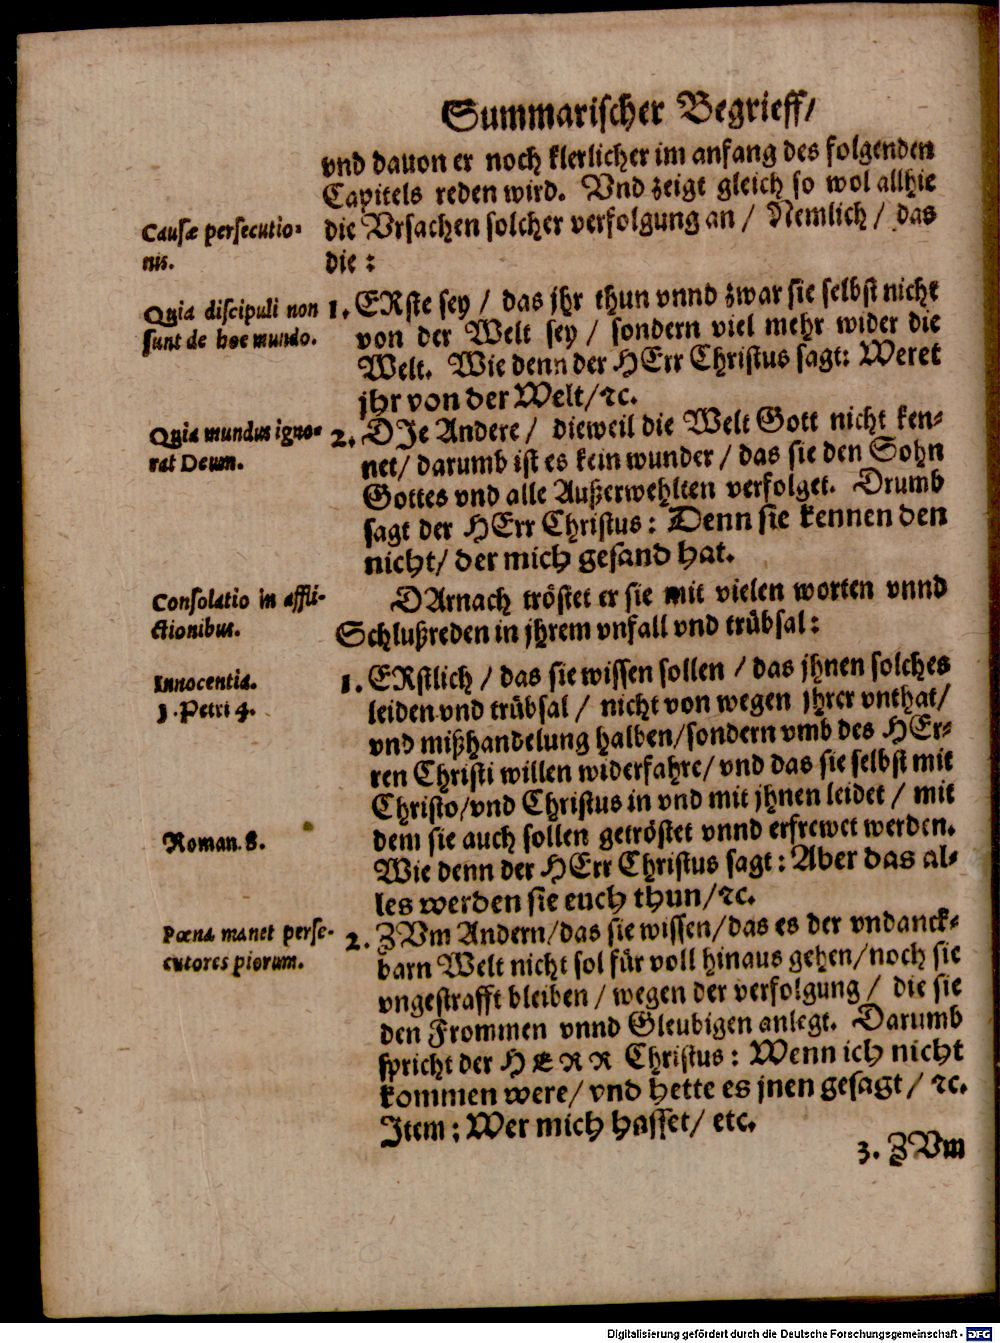 Summarischer Begrieff/
vnd dauon er noch klerlicher im anfang des folgenden
Capitels reden wird. Vnd zeigt gleich so wol allhie
die Vrsachen solcher verfolgung an / Nemlich / das
die :
Causæ persecutio-
nis.
1. ERste sey / das jhr thun vnnd zwar sie selbst nicht
von der Welt sey / sondern viel mehr wider die
Welt. Wie denn der HErr Christus sagt: Weret
jhr von der Welt/ꝛc.
Quia discipuli non
sunt de hoc mundo.
2. DJe Andere / dieweil die Welt Gott nicht ken-
net/ darumb ist es kein wunder / das sie den Sohn
Gottes vnd alle Außerwehlten verfolget. Drumb
sagt der HErr Christus: Denn sie kennen den
nicht/ der mich gesand hat.
Quia mundus igno-
rat Deum.
DArnach tröstet er sie mit vielen worten vnnd
Schlußreden in jhrem vnfall vnd trübsal:
Consolatio in affli-
ctionibus.
1. ERstlich / das sie wissen sollen / das jhnen solches
leiden vnd trübsal / nicht von wegen jhrer vnthat/
vnd mißhandelung halben/sondern vmb des HEr-
ren Christi willen widerfahre/ vnd das sie selbst mit
Christo/vnd Christus in vnd mit jhnen leidet / mit
dem sie auch sollen getröstet vnnd erfrewet werden.
Wie denn der HErr Christus sagt: Aber das al-
les werden sie euch thun/ꝛc.
Innocentia.
1. Petri 4.
Roman. 8.
2. ZVm Andern/das sie wissen/das es der vndanck-
barn Welt nicht sol für voll hinaus gehen/noch sie
vngestrafft bleiben / wegen der verfolgung / die sie
den Frommen vnnd Gleubigen anlegt. Darumb
spricht der HERR Christus: Wenn ich nicht
kommen were/ vnd hette es jnen gesagt/ ꝛc.
Jtem: Wer mich hasset/ etc.
Pœna manet perse-
cutores piorum.
3. ZVm
Digitalisierung gefördert durch die Deutsche Forschungsgemeinschaft - DFG